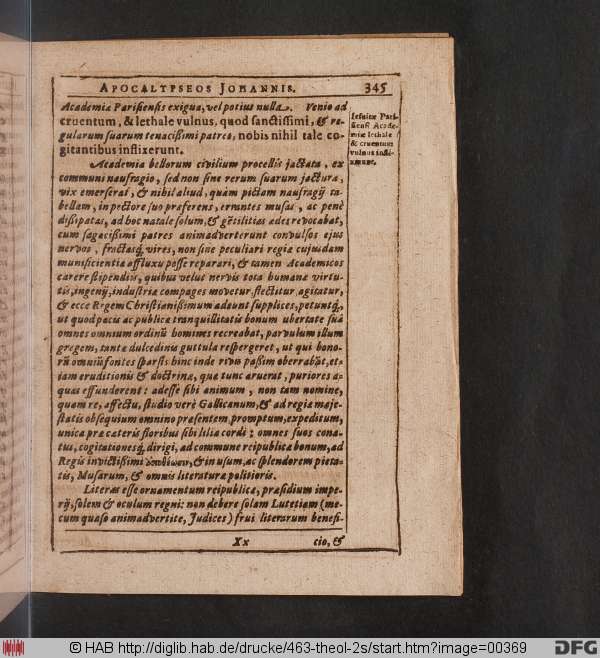 APOCALYPSEOS JOHANNIS. 345
Academiæ Parisiensis exigua, vel potius nulla. Venio ad
cruentum, & lethale vulnus, quod sanctissimi, & re-
gularum suarum tenacissimi patres, nobis nihil tale co-
gitantibus inflixerunt.
Jesuitæ Pari-
siensi Acade-
miæ lethale
& cruentum
vulnus infli-
xerunt.
Academia bellorum civilium procellis jactata, ex
communi naufragio, sed non sine rerum suarum jactura,
vix emerserat, & nihil aliud, quàm pictam naufragij ta-
bellam, in pectore suo præferens, errantes musas, ac penè
dissipatas, ad hoc natale solum, & gẽtilitias ædes revocabat,
cum sagacissimi patres animadverterunt convulsos ejus
nervos, fractasq́, vires, non sine peculiari regiæ cujusdam
munificentiæ affluxu posse reparari, & tamen Academicos
carere stipendiis, quibus velut nervis tota humanæ virtu-
tis, ingenij, industriæ compages movetur, flectitur, agitatur,
& ecce Regem Christianissimum adeunt supplices, petuntq́,
ut quod pacis ac publicæ tranquillitatis bonum ubertate suâ
omnes omnium ordinũ homines recreabat, parvulum illum
gregem, tantæ dulcedinis guttula respergeret, ut qui bono-
rũ omniũ fontes sparsis hinc inde rivis passim oberrabãt, et-
iam eruditionis & doctrinæ, quæ tunc aruerat, puriores a-
quas effunderent: adesse sibi animum, non tam nomine,
quàm re, affectu, studio verè Gallicanum, & ad regiæ maje-
statis obsequium omnino præsentem, promptum, expeditum,
unica præ cæteris floribus sibi lilia cordi; omnes suos cona-
tus, cogitationesq́, dirigi, ad commune reipublicæ bonum, ad
Regis invictissimi & in usum, ac splendorem pieta-
tis, Musarum, & omnis literaturæ politioris.
Literas esse ornamentum reipublicæ, præsidium impe-
rij, solem & oculum regni: non debere solam Lutetiam (me-
cum quæso animadvertite, Judices) frui literarum benefi-
Xx cio, &
© HAB http://diglib.hab.de/drucke/463-theol-2s/start.htm?image=00369
DFG